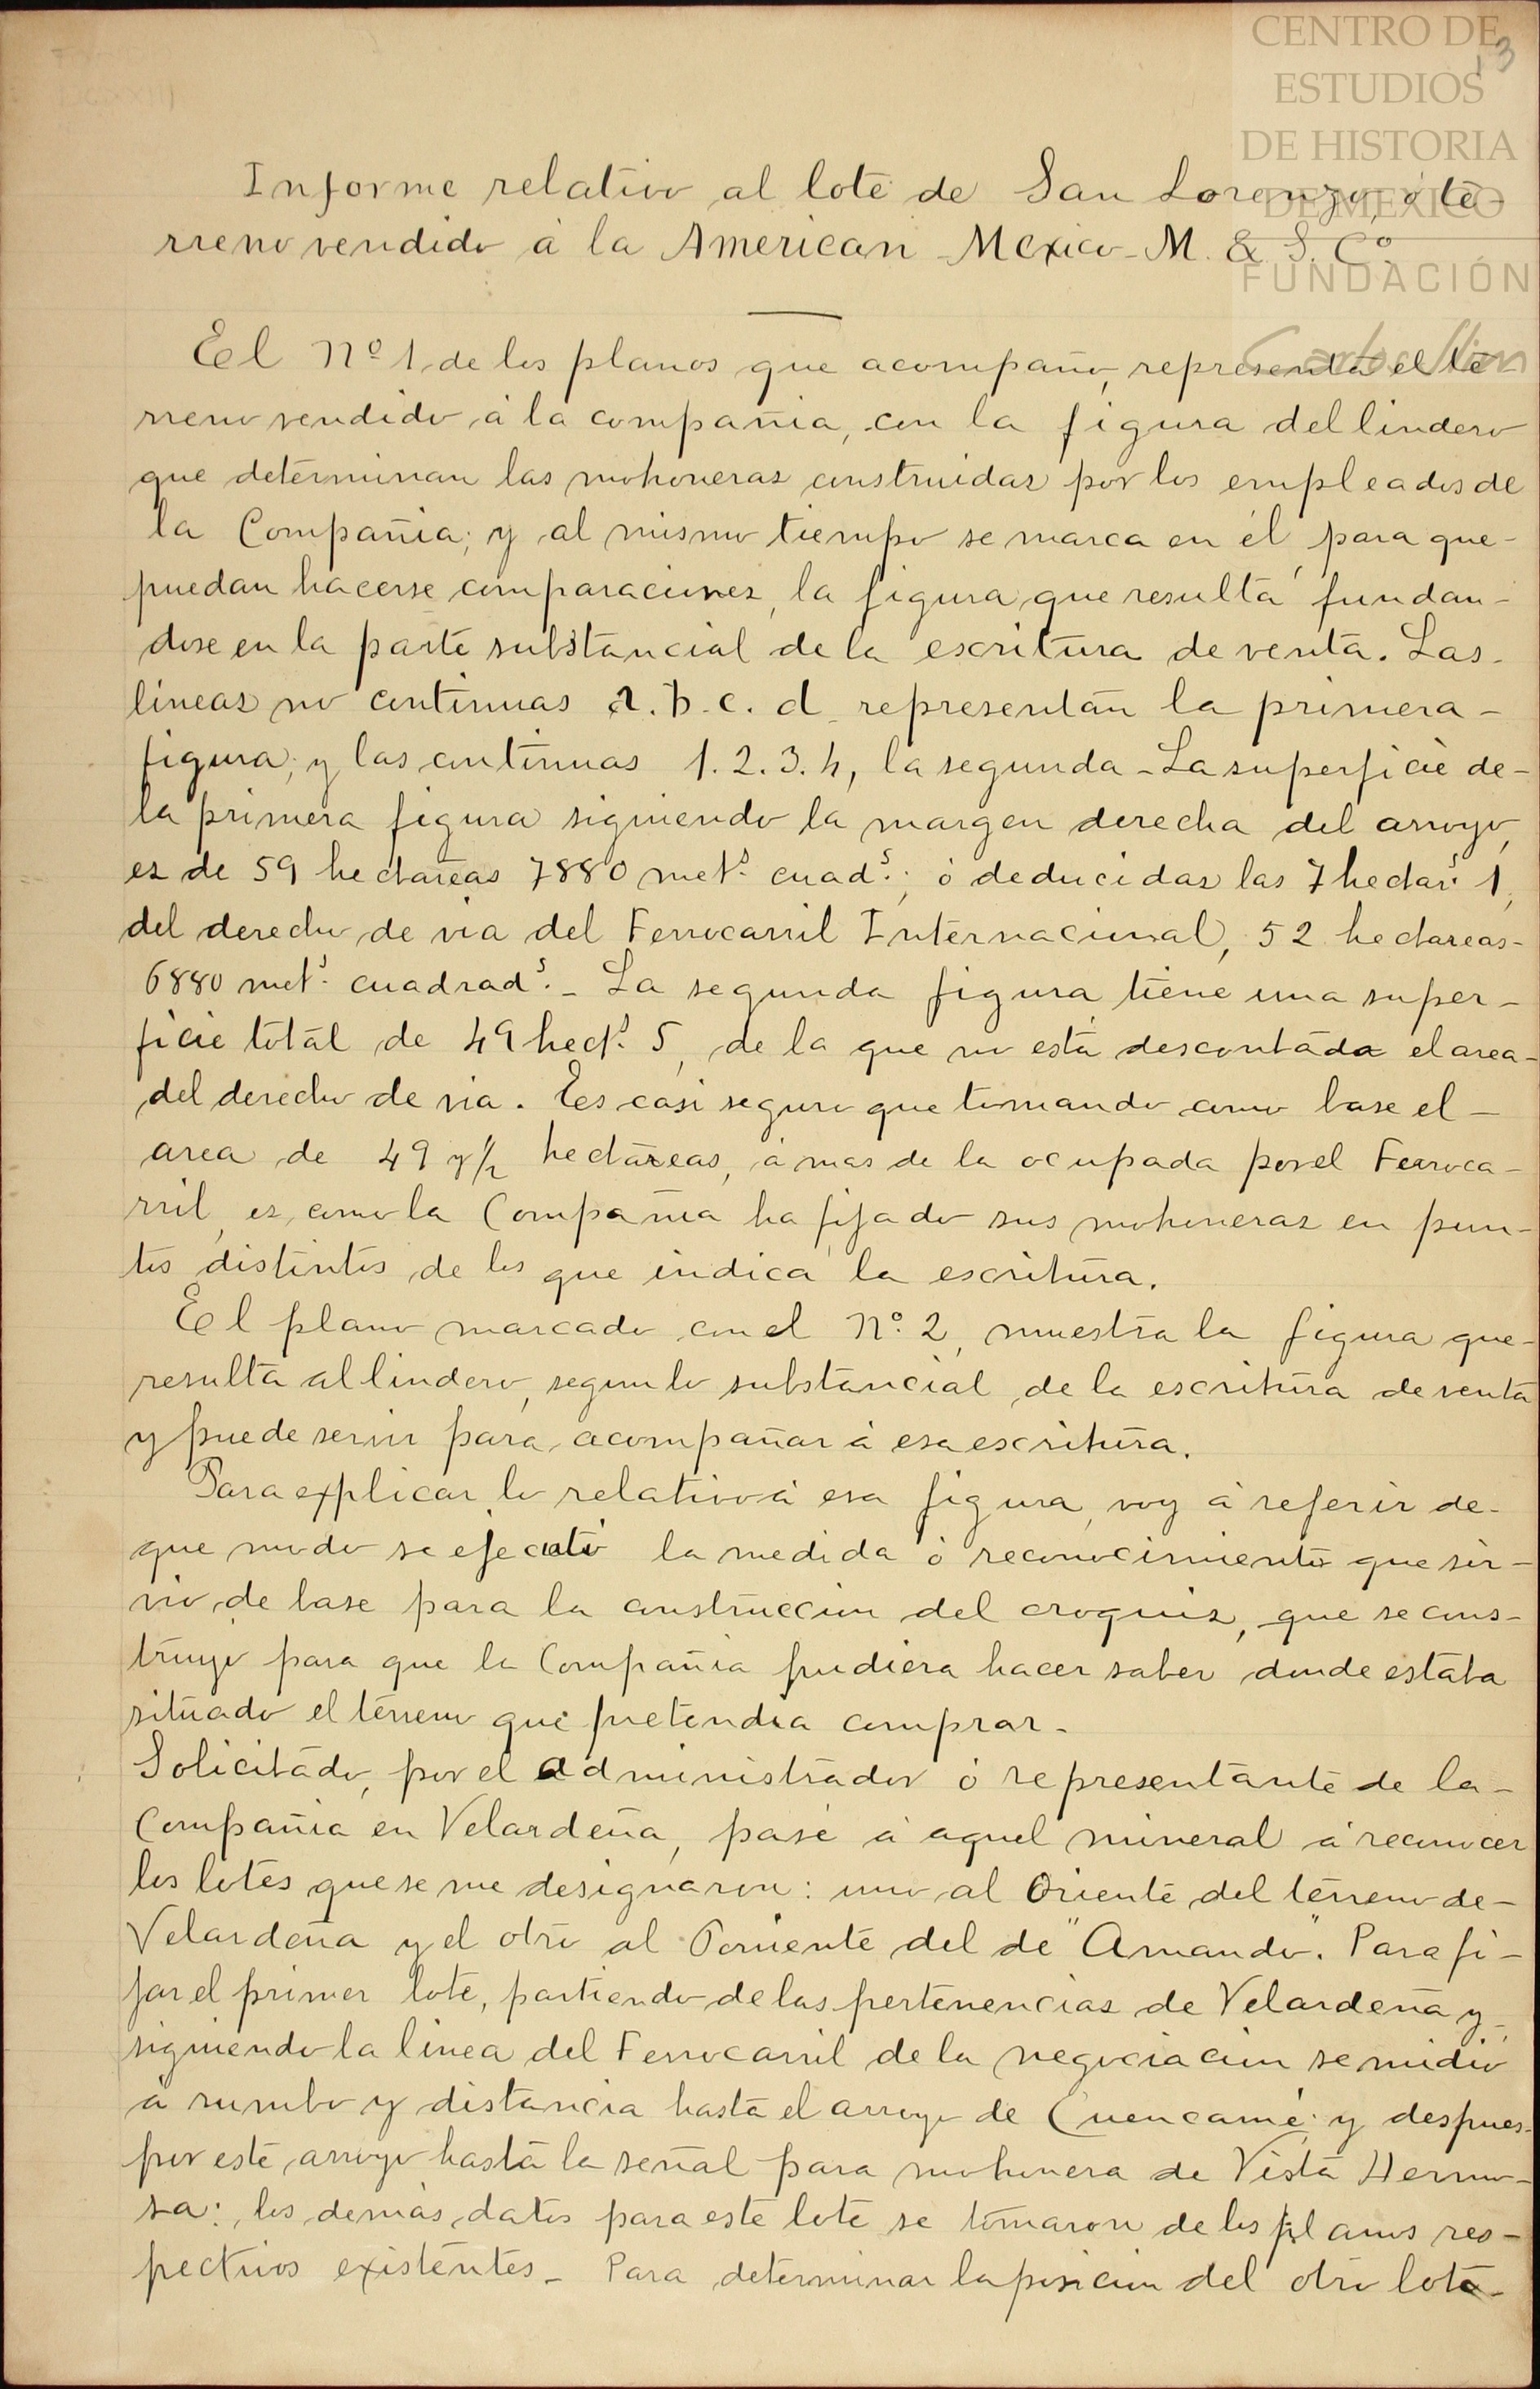 CENTRO DE
ESTUDIOS
DE HISTORIA
DE MEXICO
FUNDACIÓN
Carlos Slim
13
Informe relativo al lote de San Lorenzo, ó te-
rreno vendido á la American Mexico M. & S. Cº
El Nº 1 de los planos que acompaño, representa el te-
rreno vendido á la compañia, con la figura del lindero
que determinan las mohoneras construidas por los empleados de
la Compañia; y al mismo tiempo se marca en él, para que-
puedan hacerse comparaciones, la figura que resulta fundan-
dose en la parte substancial de la escritura de venta. Las-
lineas no continuas a. b. c. d representan la primera-
figura; y las continuas 1. 2. 3. 4, la segunda - La superficie de-
la primera figura siguiendo la margen derecha del arroyo,
es de 59 hectareas 7880 mets. cuads.; ó deducidas las 7 hectars. 1,
del derecho de via del Ferrocarril Internacional, 52 hectareas-
6880 mets. cuadrads. - La segunda figura tiene una super-
ficie total de 49 hects. 5, de la que no está descontada el area-
del derecho de via. Es casi seguro que tomando como base el-
area de 49 y ½ hectareas, á mas de la ocupada por el Ferroca-
rril, es como la Compañia ha fijado sus mohoneras en pun-
tos distintos de los que indica la escritura.
El plano marcado con el Nº. 2, muestra la figura que-
resulta al lindero, segun lo substancial de la escritura de venta
y puede servir para acompañar á esa escritura.
Para explicar lo relativo á esa figura, voy á referir de-
que modo se ejecutó la medida ó reconocimiento que sir-
vio de base para la construccion del croquis, que se cons-
truyó para que la Compañia pudiera hacer saber donde estaba
situado el terreno que pretendia comprar-
Solicitado, por el administrador ó representante de la-
Compañia en Velardeña, pasé á aquel mineral á reconocer
los lotes que se me designaron: uno al Oriente del terreno de-
Velardeña y el otro al Poniente del de "Amando". Para fi-
jar el primer lote, partiendo de las pertenencias de Velardeña y-
siguiendo la linea del Ferrocarril de la negociacion se midió
á rumbo y distancia hasta el arroyo de Cuencamé; y despues-
por este arroyo hasta la señal para mohonera de Vista Hermo-
sa; los demas datos para este lote se tomaron de los planos res-
pectivos existentes - Para determinar la posicion del otro lote-